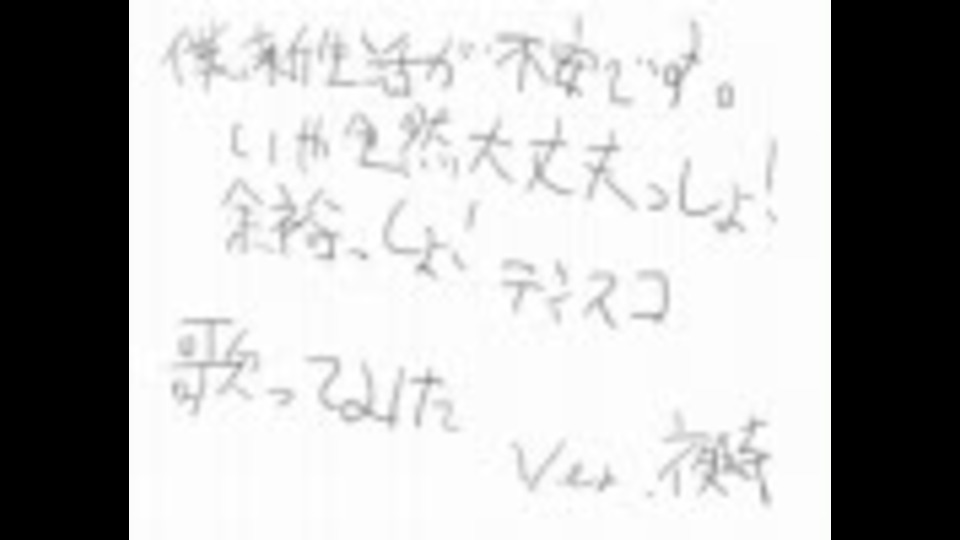 僕、新生活が不安です。
いや全然大丈夫っしょ!
余裕っしょ!ディスコ
歌ってみた
Ver.夜時